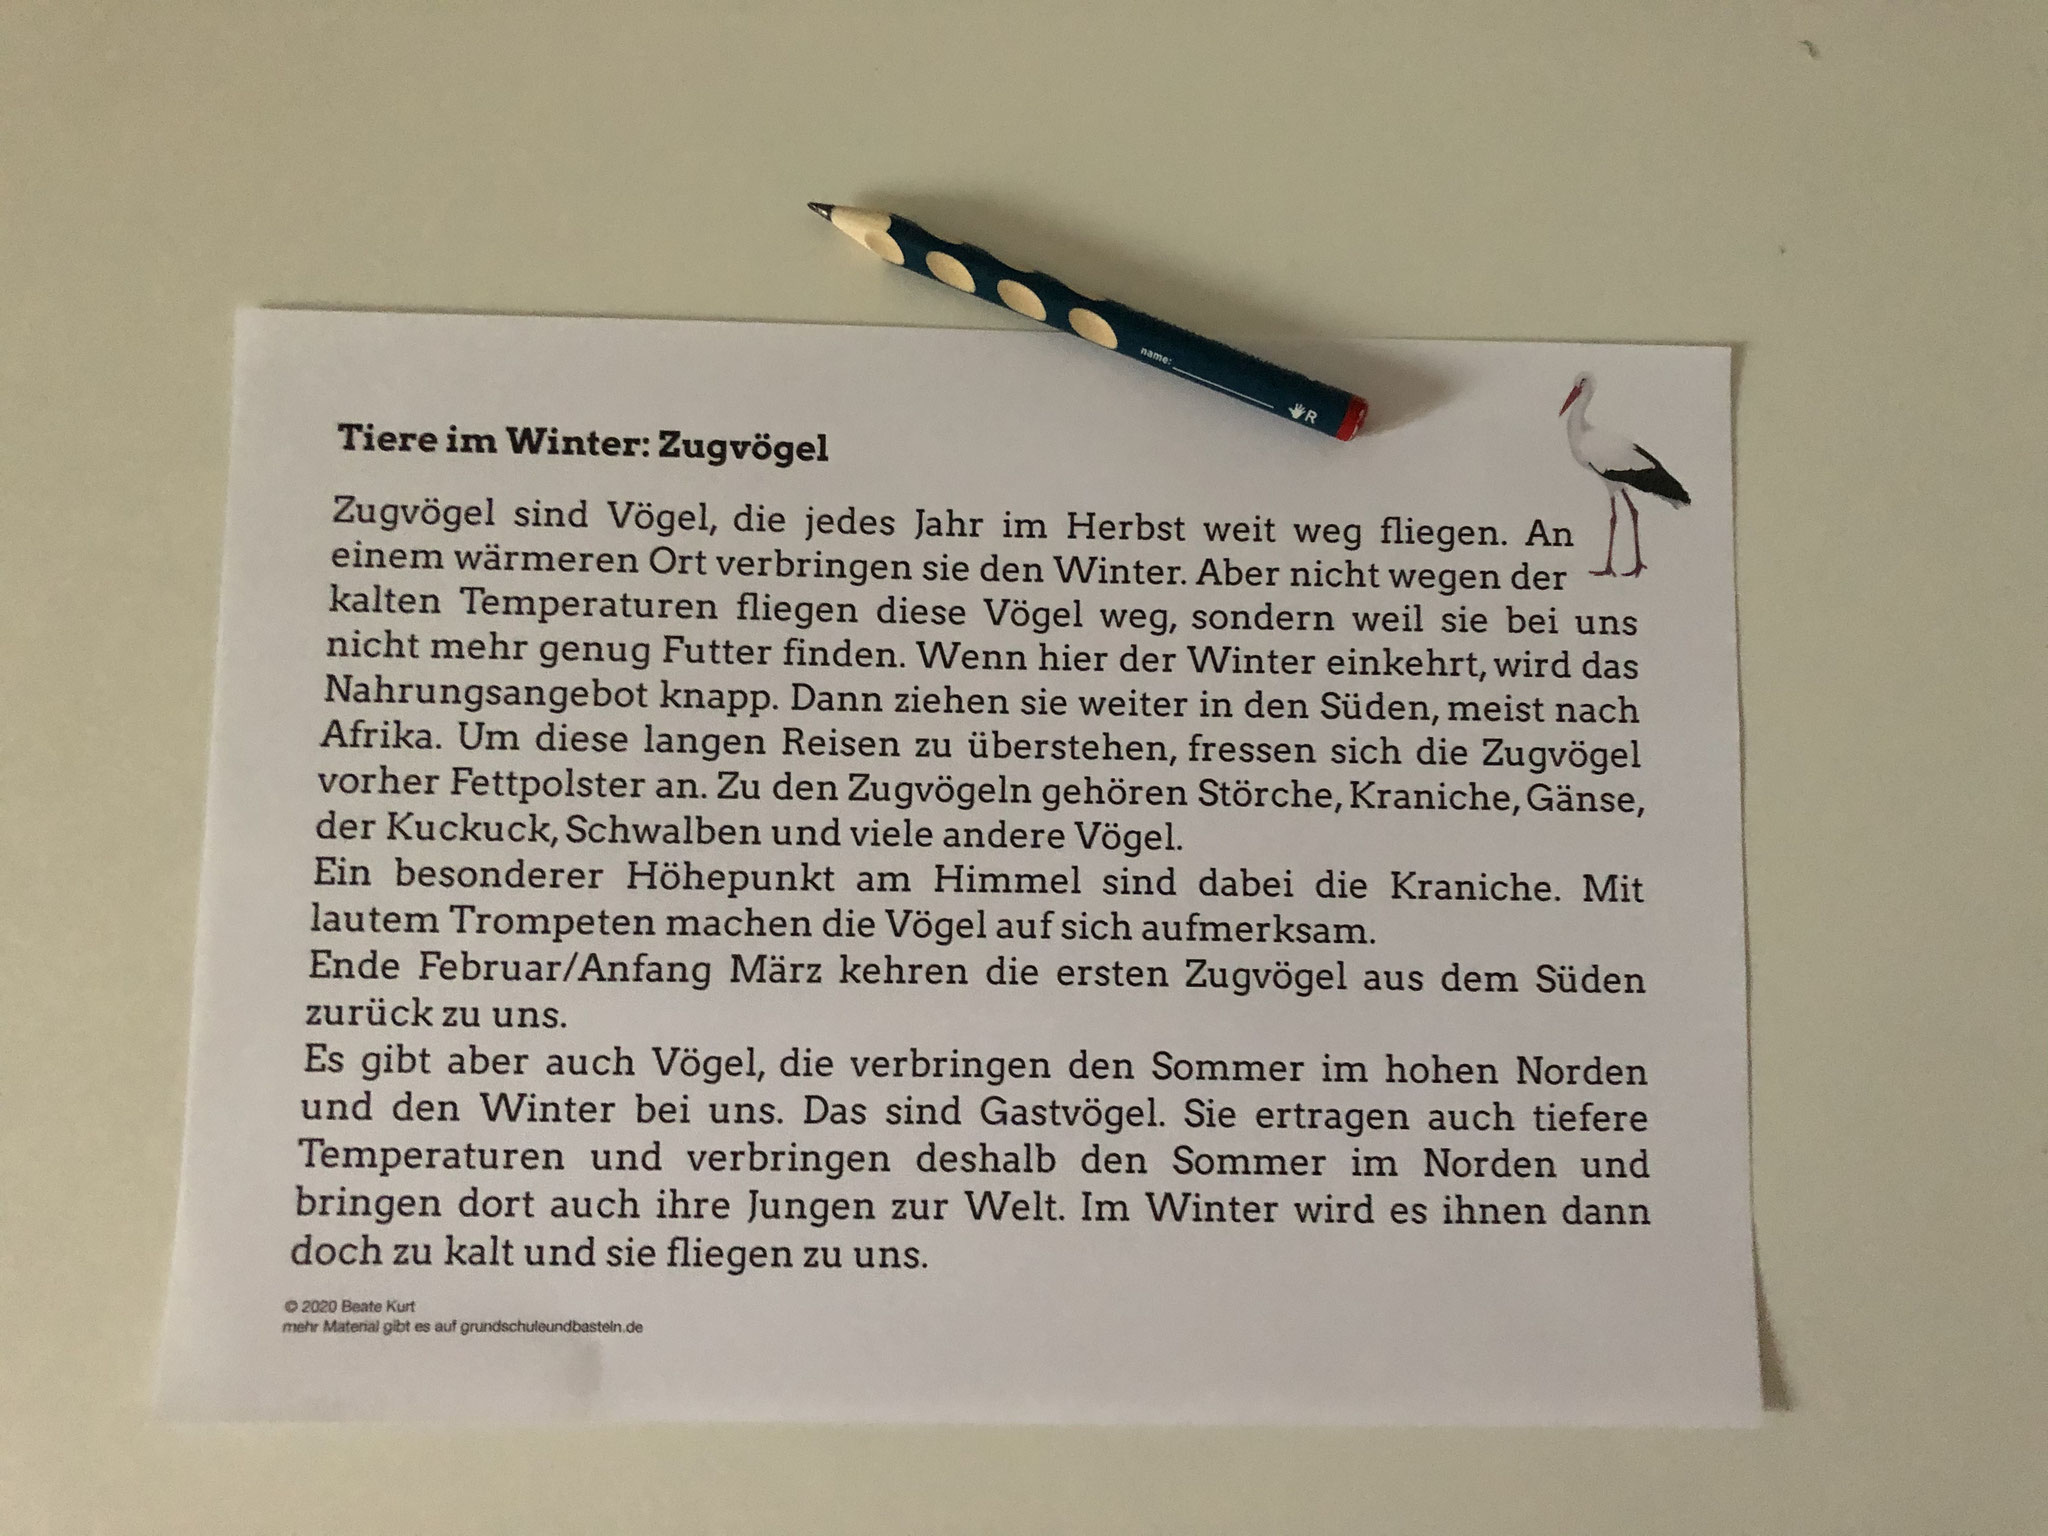 name:
R
Tiere im Winter: Zugvögel
Zugvögel sind Vögel, die jedes Jahr im Herbst weit weg fliegen. An
einem wärmeren Ort verbringen sie den Winter. Aber nicht wegen der
kalten Temperaturen fliegen diese Vögel weg, sondern weil sie bei uns
nicht mehr genug Futter finden. Wenn hier der Winter einkehrt, wird das
Nahrungsangebot knapp. Dann ziehen sie weiter in den Süden, meist nach
Afrika. Um diese langen Reisen zu überstehen, fressen sich die Zugvögel
vorher Fettpolster an. Zu den Zugvögeln gehören Störche, Kraniche, Gänse,
der Kuckuck, Schwalben und viele andere Vögel.
Ein besonderer Höhepunkt am Himmel sind dabei die Kraniche. Mit
lautem Trompeten machen die Vögel auf sich aufmerksam.
Ende Februar/Anfang März kehren die ersten Zugvögel aus dem Süden
zurück zu uns.
Es gibt aber auch Vögel, die verbringen den Sommer im hohen Norden
und den Winter bei uns. Das sind Gastvögel. Sie ertragen auch tiefere
Temperaturen und verbringen deshalb den Sommer im Norden und
bringen dort auch ihre Jungen zur Welt. Im Winter wird es ihnen dann
doch zu kalt und sie fliegen zu uns.
© 2020 Beate Kurt
mehr Material gibt es auf grundschuleundbasteln.de